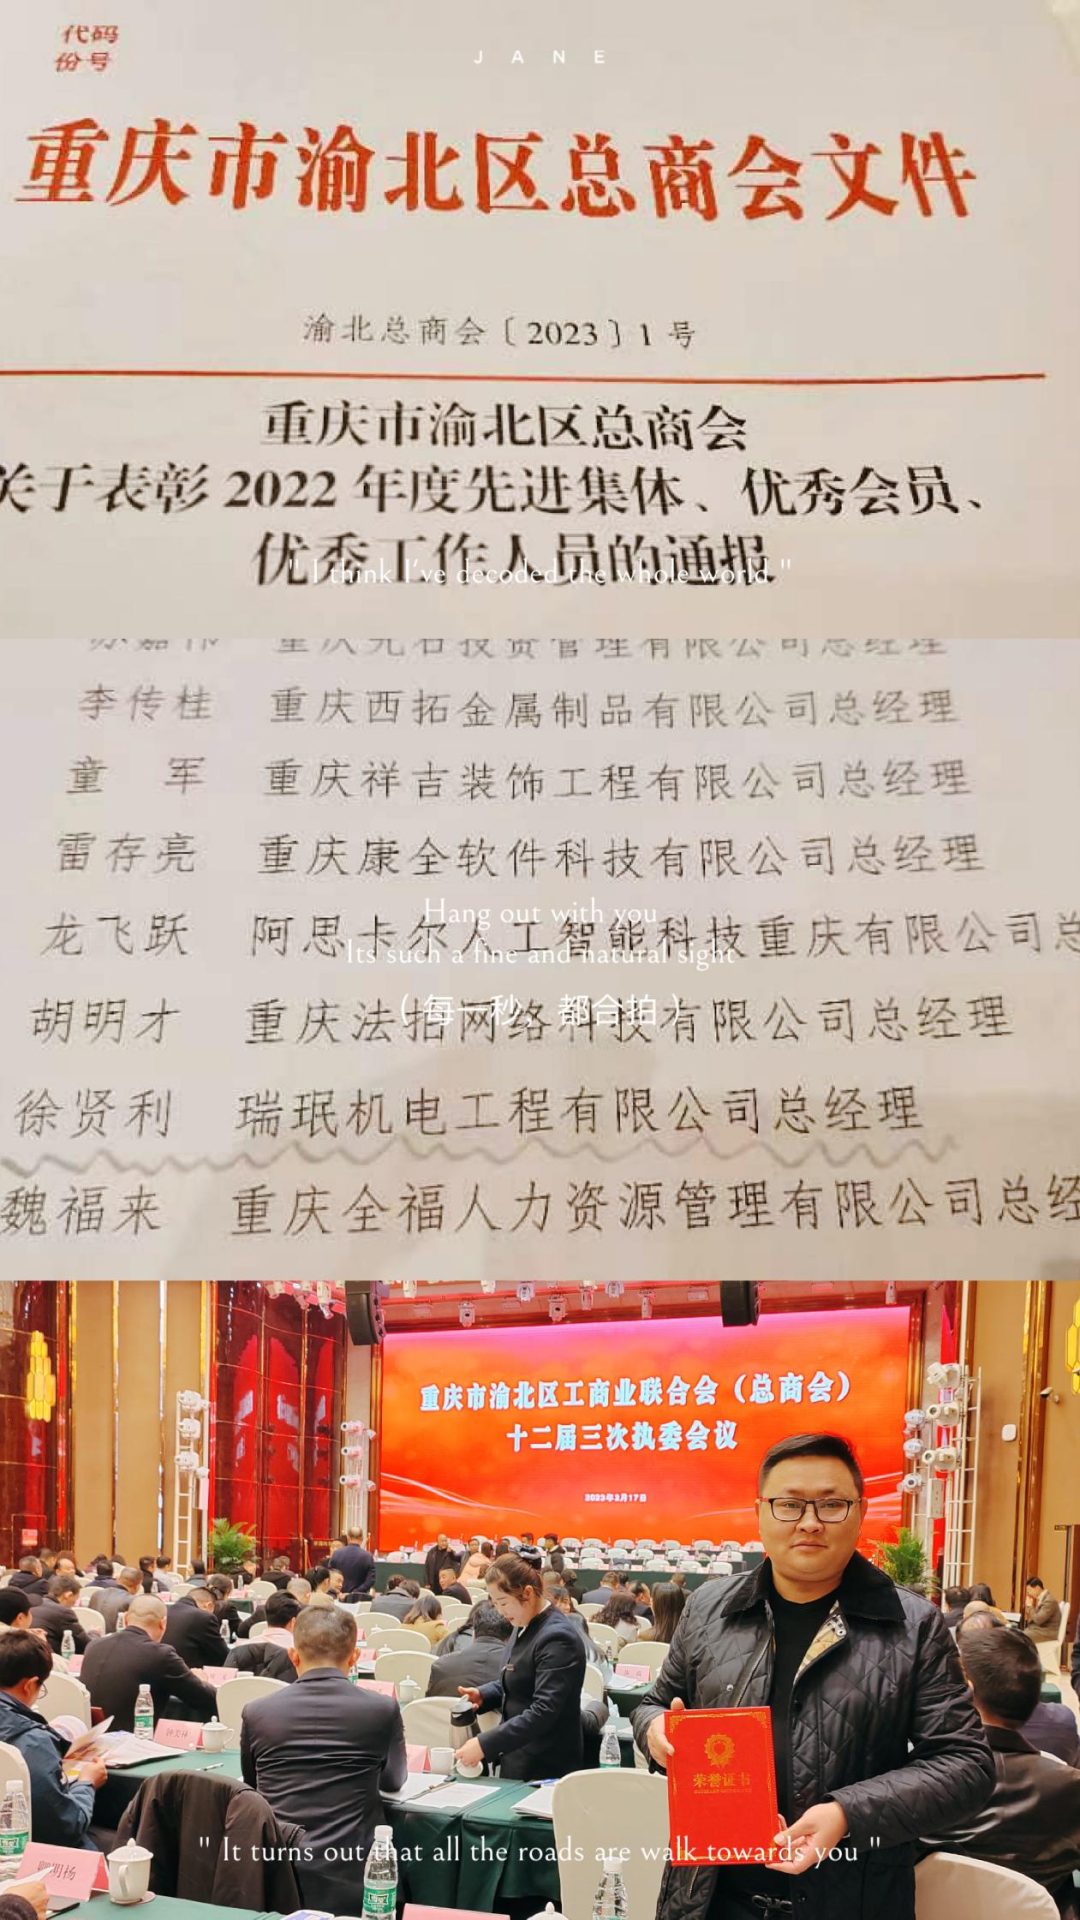 代码
份号
JANE
重庆市渝北区总商会文件
渝北总商会〔2023〕1号
重庆市渝北区总商会
关于表彰2022年度先进集体、优秀会员、
优秀工作人员的通报
" I think I've decoded the whole world "
重庆元石投资管理有限公司总经理
李传桂 重庆西拓金属制品有限公司总经理
童 军 重庆祥吉装饰工程有限公司总经理
雷存亮 重庆康全软件科技有限公司总经理
Hang out with you
龙飞跃 阿思卡尔人工智能科技重庆有限公司总
Its such a fine and natural sight
(每一秒，都合拍)
胡明才 重庆法拍网络科技有限公司总经理
徐贤利 瑞珉机电工程有限公司总经理
魏福来 重庆全福人力资源管理有限公司总经
重庆市渝北区工商业联合会（总商会）
十二届三次执委会议
2023年2月17日
荣誉证书
" It turns out that all the roads are walk towards you "